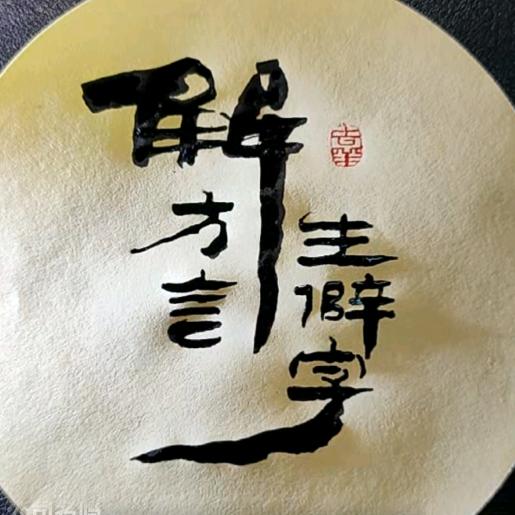 解
方言
生僻字